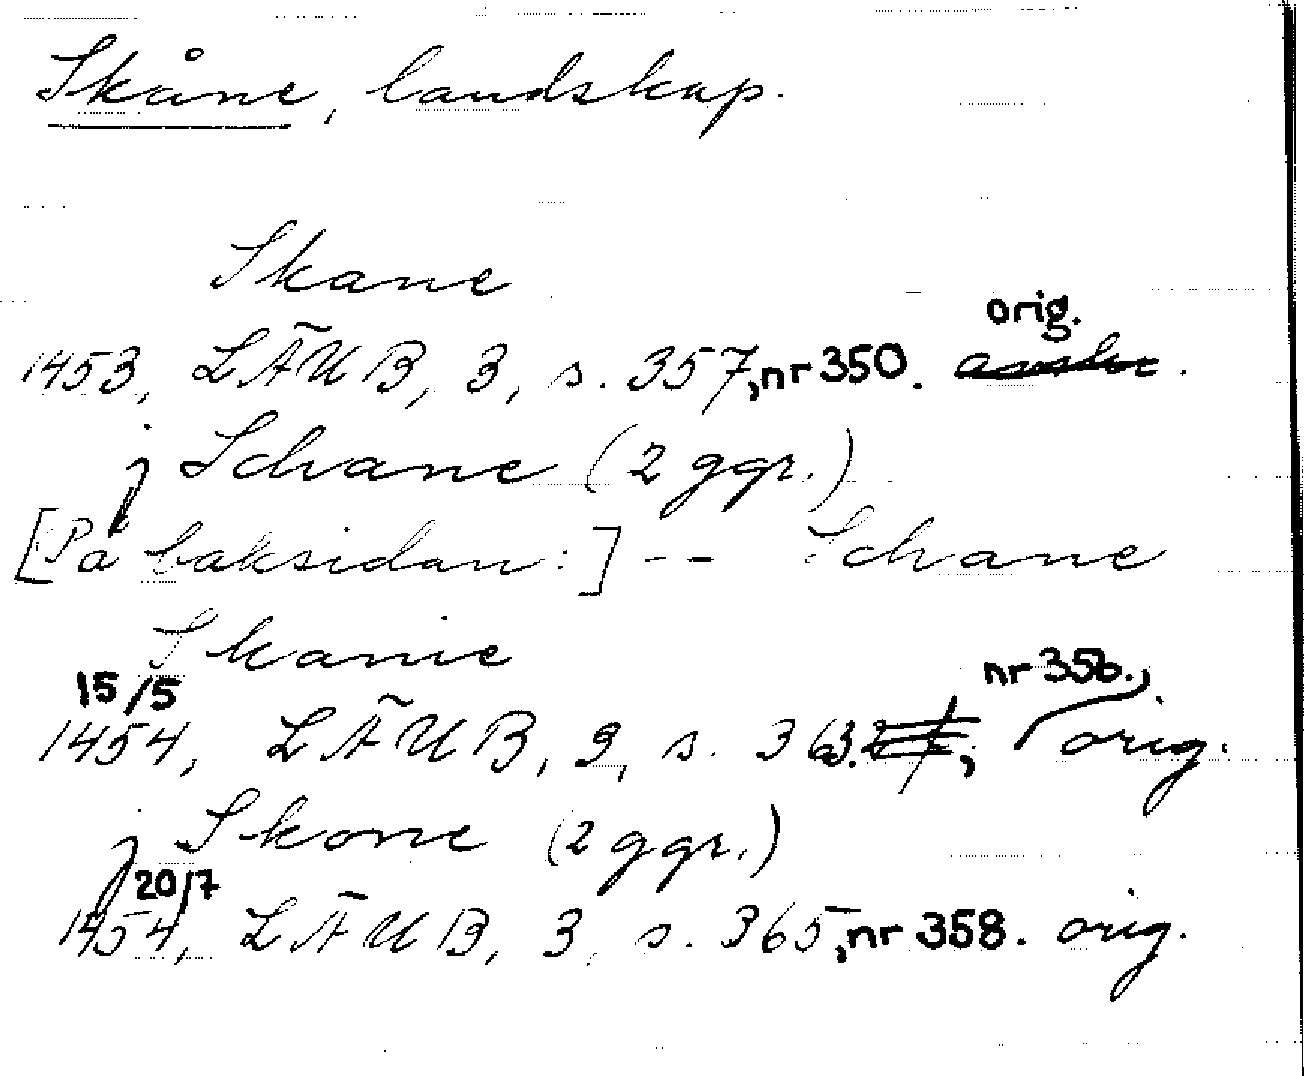 Skåne, landskap.
Skane
orig.
1453, LÄUB, 3, s. 357, nr 350.
j Schane (2 ggr.)
[På baksidan:] -- Schane
Skanie
15/5 nr 356.,
1454, LÄUB, 3, s. 363. ; orig.
j Skone (2 ggr.)
20/7
1454, LÄUB, 3, s. 365, nr 358. orig.